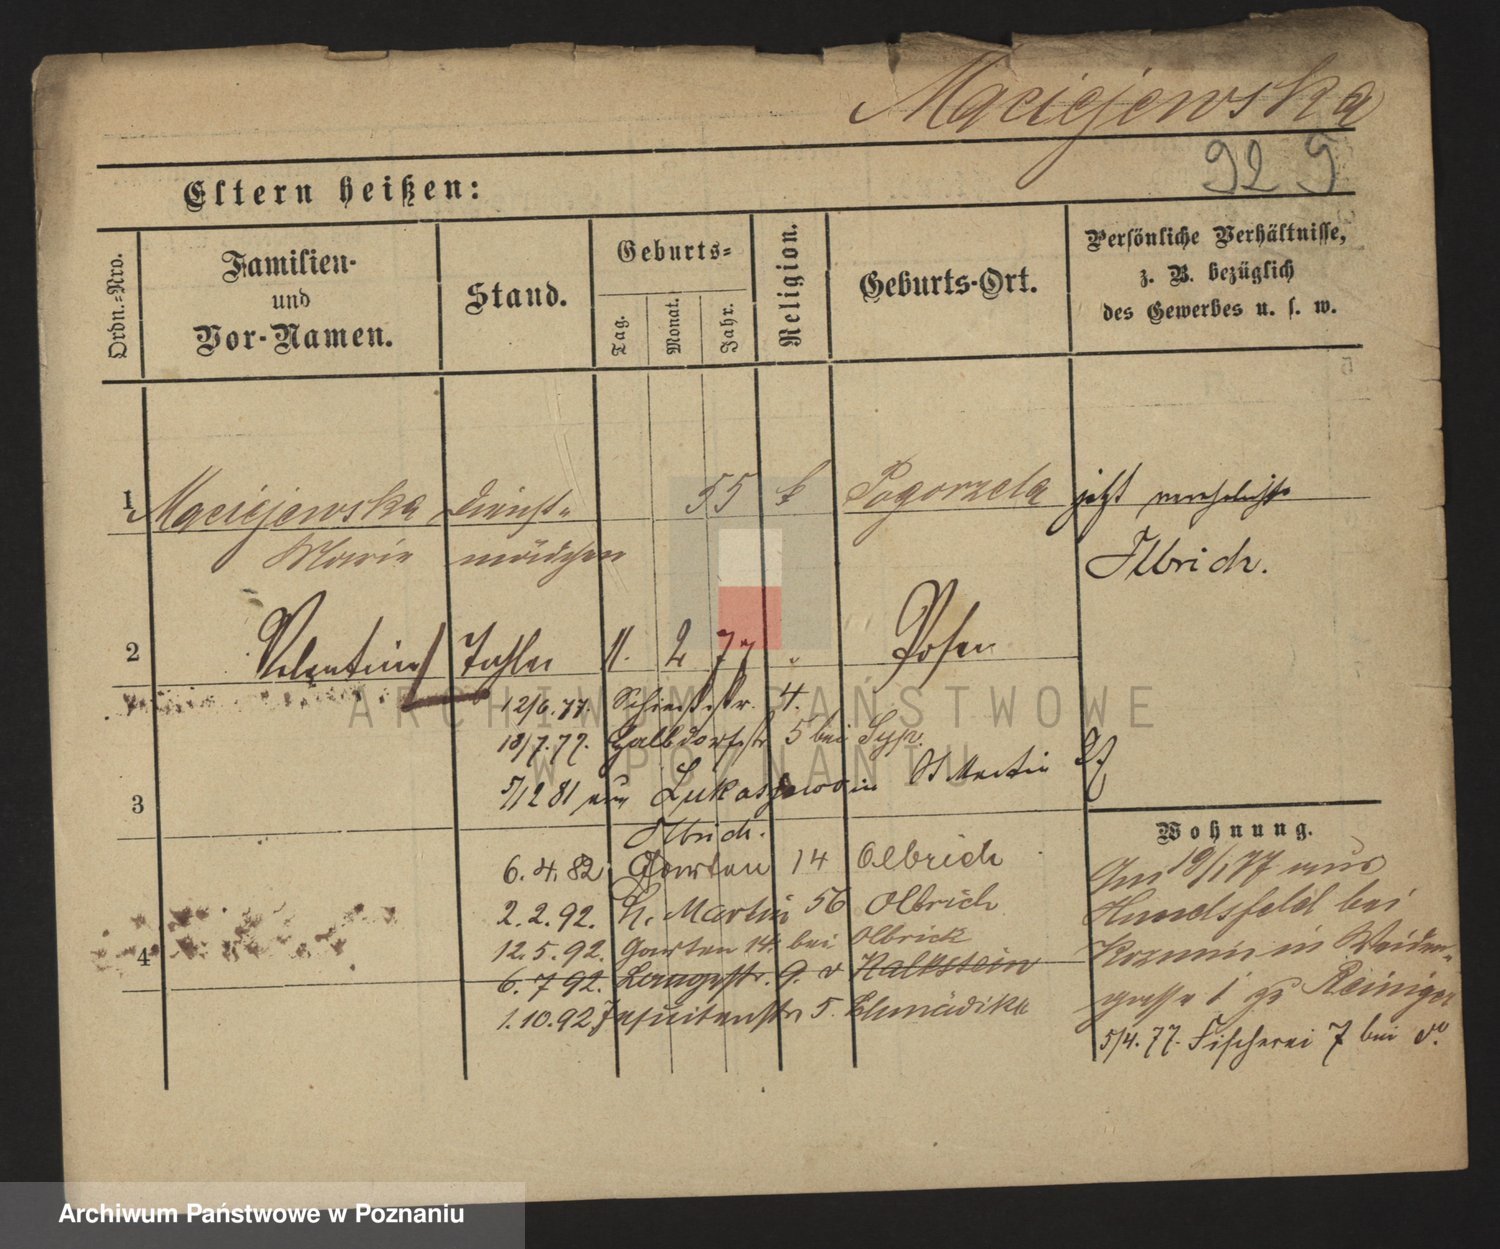 Maciejewska
929
Eltern heißen:
Ordn.-Nro.
Familien-
und
Vor-Namen.
Stand.
Geburts-
Tag.
Monat.
Jahr.
Religion.
Geburts-Ort.
Persönliche Verhältnisse,
z. B. bezüglich
des Gewerbes u. s. w.
1 Maciejewska Dienst- 55 k Pogorzela jetzt verehelichte
Marie mädchen Ilbrich.
2 Valentine Tochter 11. 2 77 " Posen
12/6.77. Schießstr. 4.
18/7.77. Halbdorfstr 5 bei
3 5/12 81 aus Lukaszewo in St Martin 27
Olbrich.
6.4.82 Garten 14 Olbrich
2.2.92. St. Martin 56 Olbrich
12.5.92. Garten 14. bei Olbrich
4 6.7 92. Langestr. 9. v Kalkstein
1.10.92 Jesuitenstr 5.
Wohnung.
Am 19/1 77 aus
Hundsfeld bei
in Weiden-
gasse 1 Reiniger
5/4.77. Fischerei 7 bei do.
ARCHIWUM PAŃSTWOWE
W POZNANIU
Archiwum Państwowe w Poznaniu